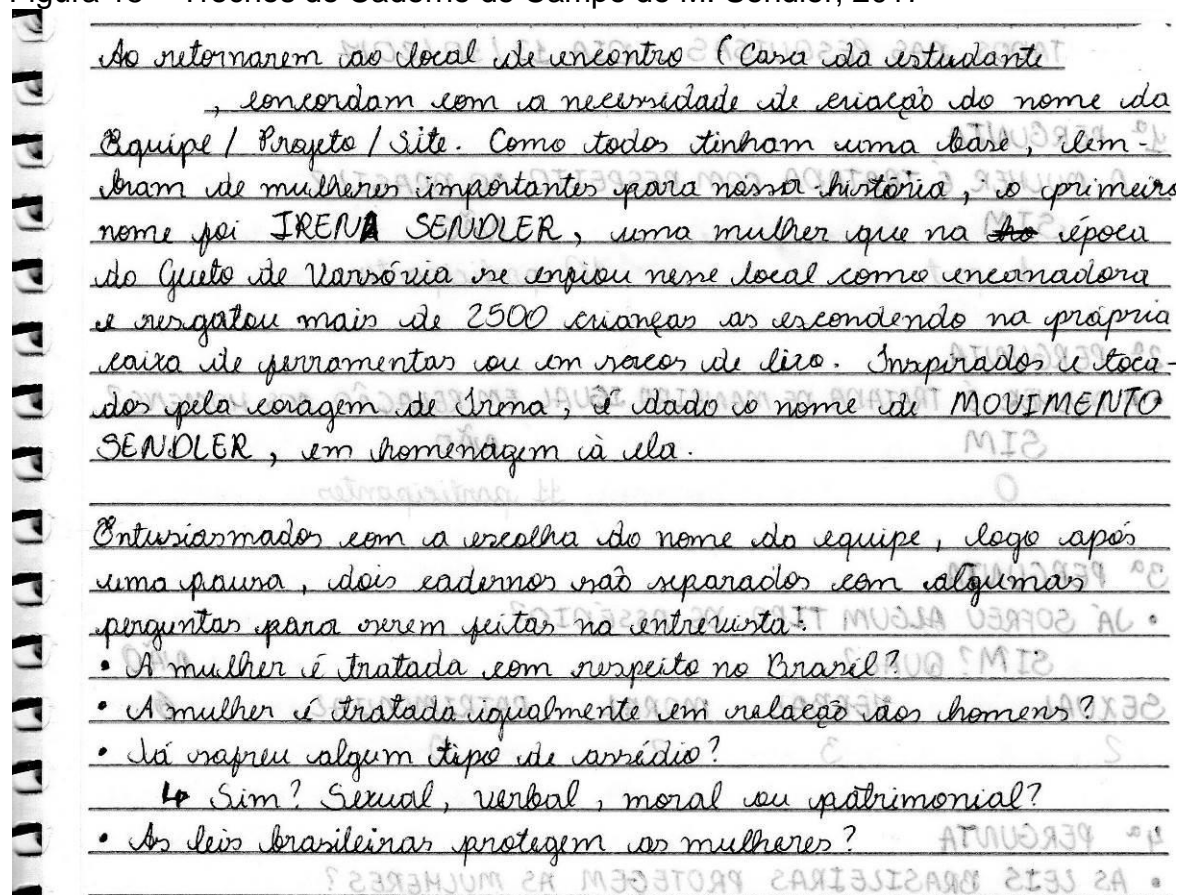 Figura 13 – Trechos do Caderno de Campo de M. Sendler, 2017
Ao retornarem ao local de encontro (Casa da estudante
, concordam com a necessidade de criação do nome da
Equipe / Projeto / Site. Como todos tinham uma base, lem-
bram de mulheres importantes para nossa história, o primeiro
nome foi IRENA SENDLER, uma mulher que na época
do Gueto de Varsóvia se enfiou nesse local como encanadora
e resgatou mais de 2500 crianças as escondendo na própria
caixa de ferramentas ou em sacos de lixo. Inspirados e toca-
dos pela coragem de Irena, é dado o nome de MOVIMENTO
SENDLER, em homenagem à ela.
Entusiasmados com a escolha do nome da equipe, logo após
uma pausa, dois cadernos são separados com algumas
perguntas para serem feitas na entrevista:
• A mulher é tratada com respeito no Brasil?
• A mulher é tratada igualmente em relação aos homens?
• Já sofreu algum tipo de assédio?
↳ Sim? Sexual, verbal, moral ou patrimonial?
• As leis brasileiras protegem as mulheres?